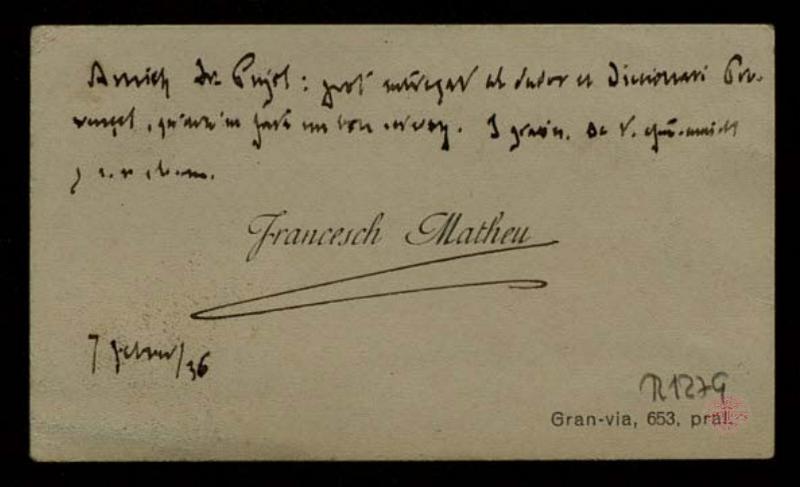 Amich Dr. Pujol: pot entregar al dador el Diccionari Pro-
vençal, que'm farà un bon servey. I gracies. De V. afm. amich
Francesch Matheu
7 febrer/36
R1279
Gran-via, 653, pral.